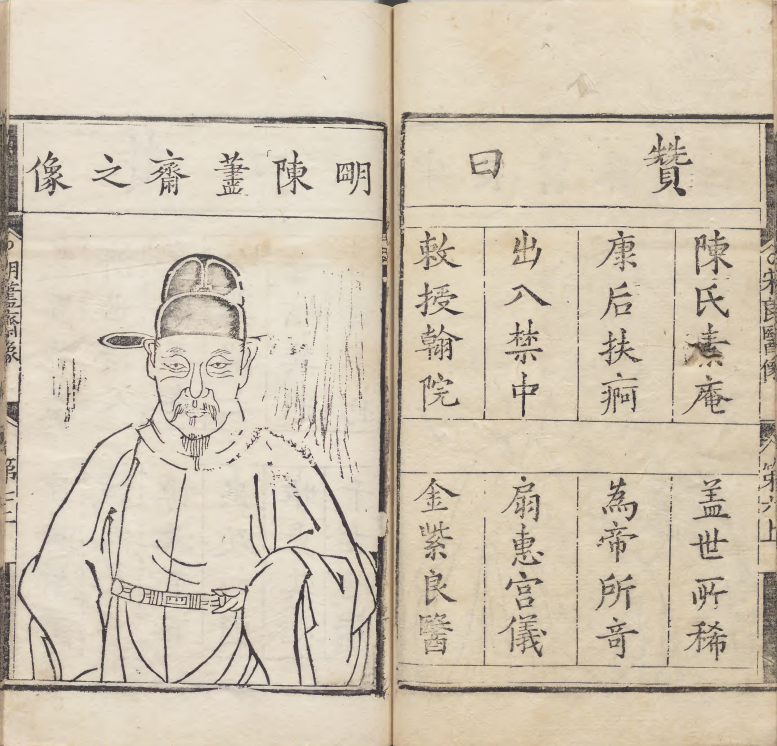 宋良醫像
第六上
賛曰
陳氏素庵
盖世所稀
康后扶痾
為帝所竒
出入禁中
扇惠宮儀
敕授翰院
金紫良醫
明陳藎齋之像
明藎齋像